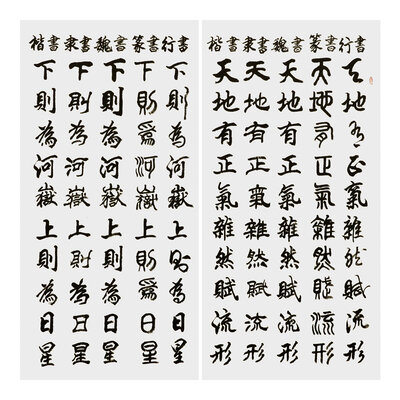 楷書隶書魏書篆書行書
天地有正氣雜然賦流形
天地有正氣雜然賦流形
天地有正氣雜然賦流形
天地有正氣雜然賦流形
天地有正氣雜然賦流形
楷書隶書魏書篆書行書
下則為河嶽上則為日星
下則為河嶽上則為日星
下則為河嶽上則為日星
下則為河嶽上則為日星
下則為河嶽上則為日星